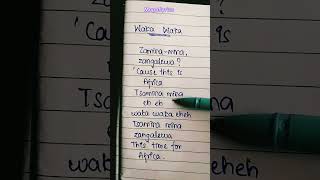 Waka Waka
Zamina-mina,
zangalewa?
'Cause this is
Africa
Tsamina mina
eh eh
waka waka eheh
Tsamina mina
zangalewa
This time for
Africa.